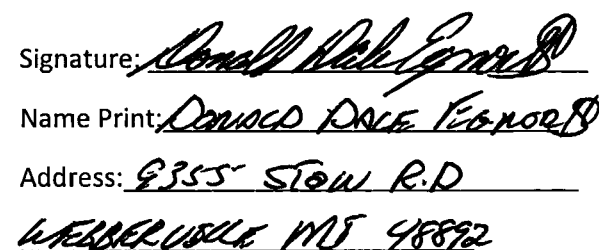 Signature: Donald Dale Egnor
Name Print: DONALD DALE EGNOR
Address: 9355 STOW R.D
WEBBERVILLE MI 48892